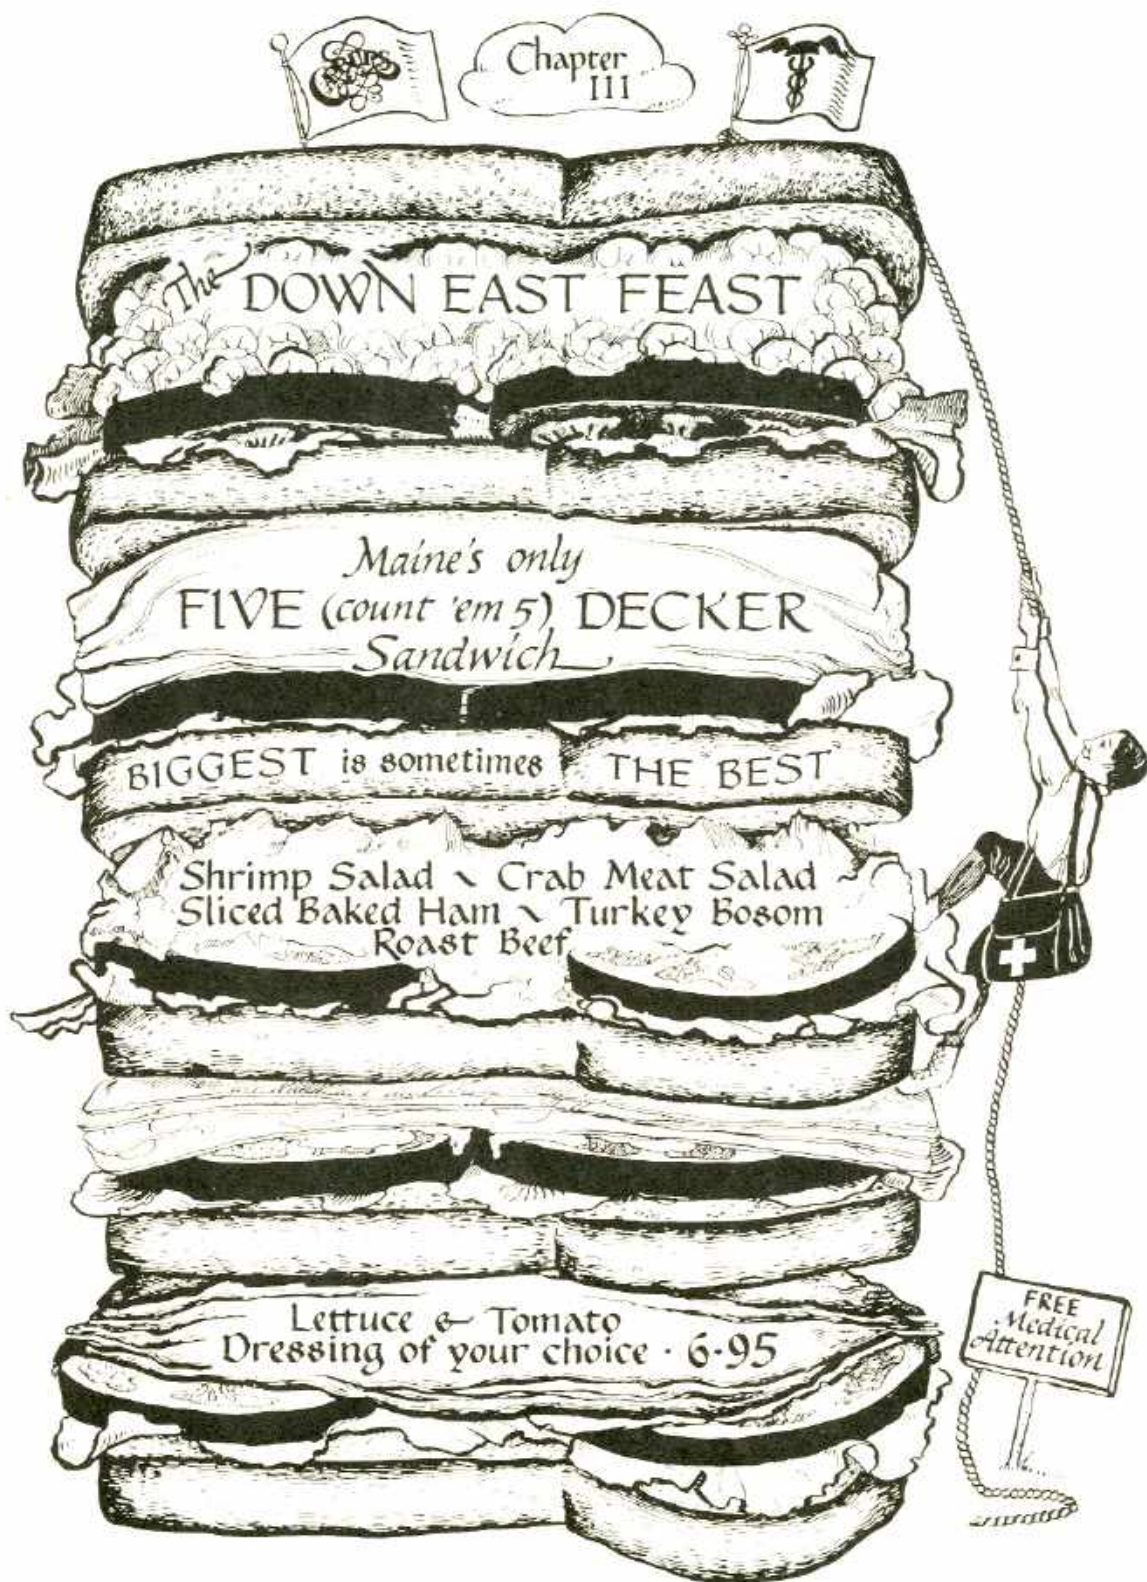 Chapter
III
The DOWN EAST FEAST
Maine's only
FIVE (count 'em 5) DECKER
Sandwich
BIGGEST is sometimes THE BEST
Shrimp Salad ~ Crab Meat Salad
Sliced Baked Ham ~ Turkey Bosom
Roast Beef
Lettuce & Tomato
Dressing of your choice · 6.95
FREE
Medical
Attention